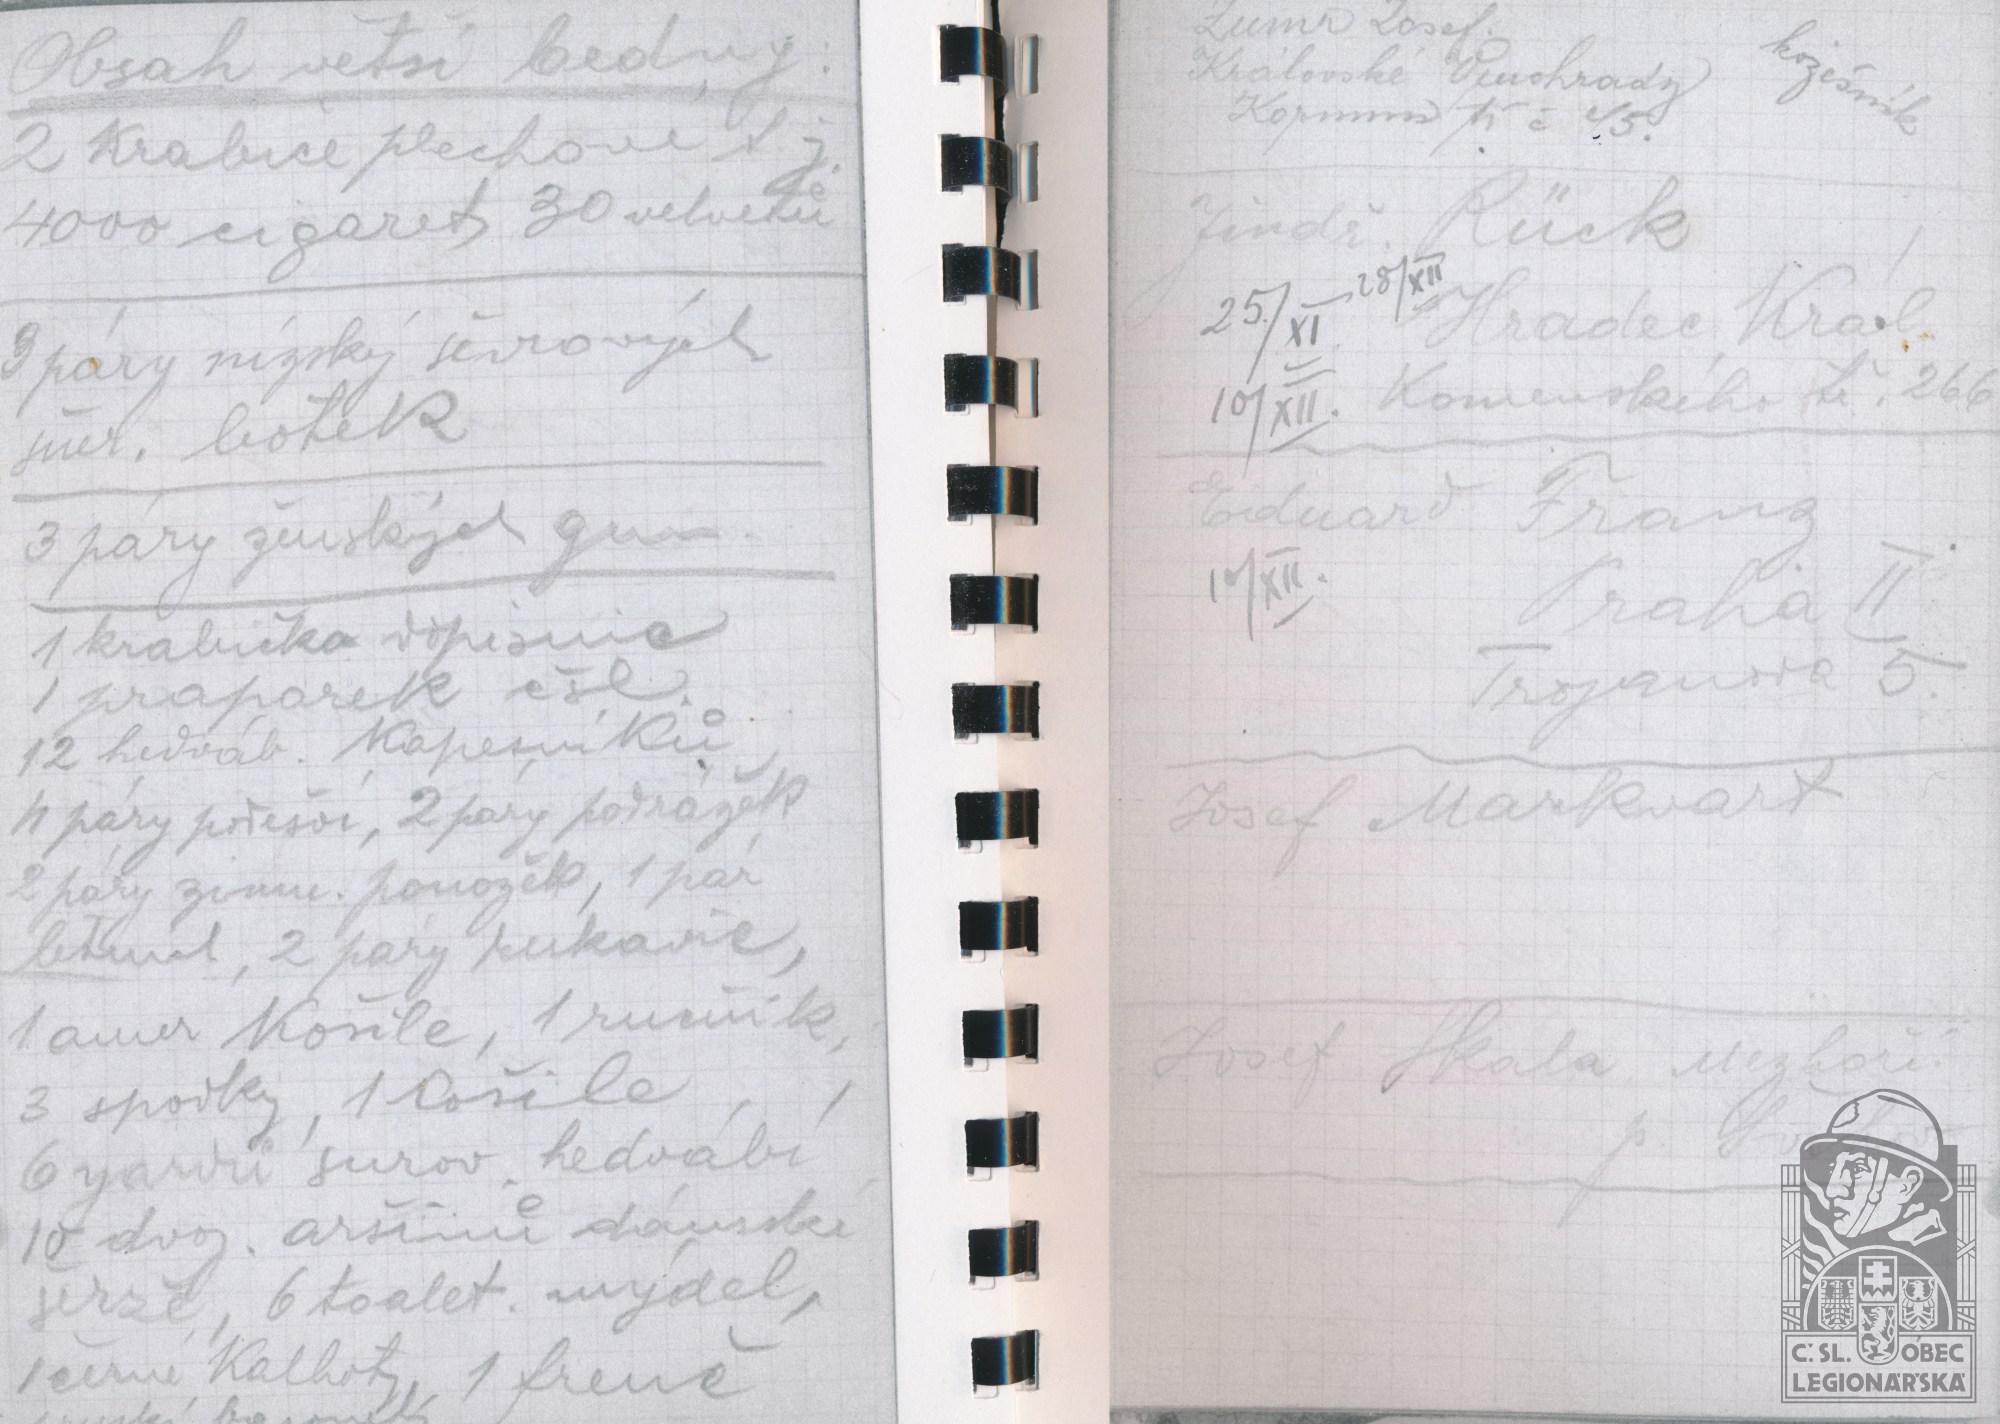 Obsah větší bedny:
2 krabice plechové t. j.
4000 cigaret 30 velvetů
3 páry nízský ševrových
šněr. botek
3 páry ženských gum.
1 krabička dopisnic
1 praporek čsl.
12 hedváb. Kapesníků
4 páry podešví, 2 páry podrážek
2 páry zimn. ponožek, 1 pár
letních, 2 páry rukavic,
1 amer Košile, 1 ručník,
3 spodky, 1 košile,
6 yardů surov. hedvábí
10 dvoj. aršínů dámské
serže, 6 toalet. mýdel,
1 černé Kalhoty, 1 frenč
Zumr Josef.
kožešník
Královské Vinohrady
tř č 45.
Jindř. Rück
25./XI 28/XII Hradec Král
10/XII. Komenského tř. 266
Eduard Franz
10/XII. Praha II
Trojanova 5.
Josef Markvart
Josef Skala Mezhoří
p.
Č. SL. OBEC
LEGIONÁŘSKÁ